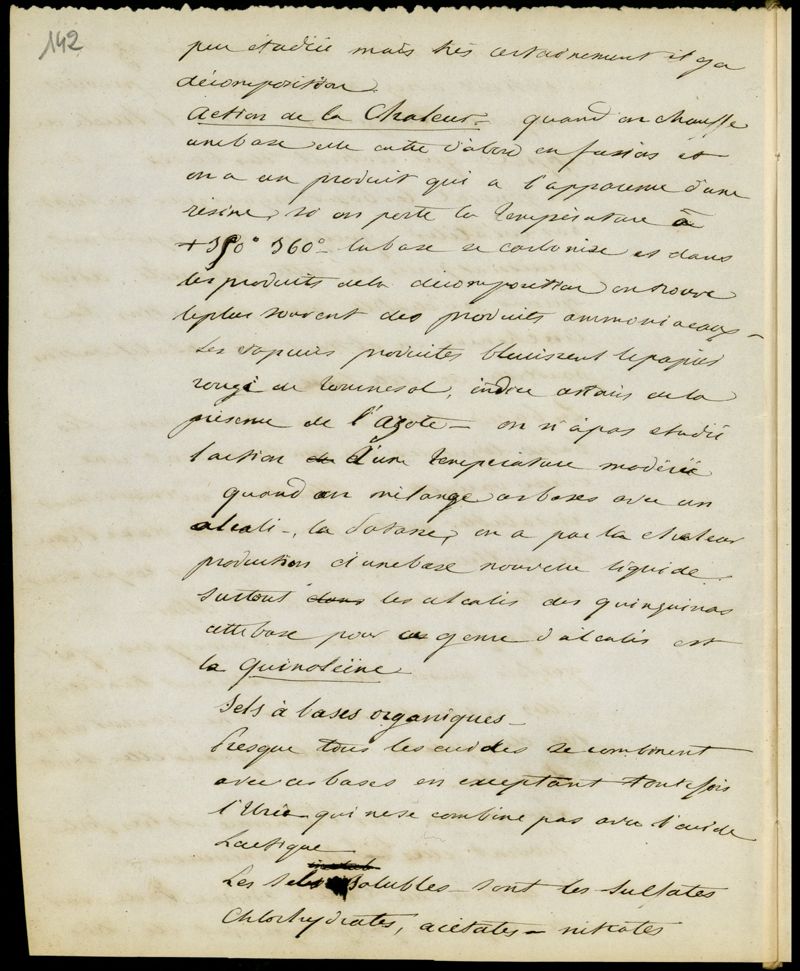 142
peu étudiée mais très certainement il y a
décomposition.
Action de la Chaleur. quand on chauffe
une base elle entre d'abord en fusion et
on a un produit qui a l'apparence d'une
résine, si on porte la température à
+350° 360° la base se carbonise et dans
les produits de la décomposition on trouve
le plus souvent des produits ammoniacaux –
Les vapeurs produites bleuissent le papier
rougi de tournesol, indice certain de la
présence de l'azote – on n'a pas étudié
l'action de d'une température modérée
quand on mélange ces bases avec un
alcali –, la Potasse, on a par la chaleur
production d'une base nouvelle liquide.
surtout dans les alcalis des quinquinas
cette base pour ce genre d'alcalis est
la quinoléine
Sels à bases organiques –
Presque tous les acides se combinent
avec ces bases en exceptant toutefois
l'Urée qui ne se combine pas avec l'acide
Lactique
Les Sels Solubles sont les sulfates
Chlorhydrates, acétates – nitrates